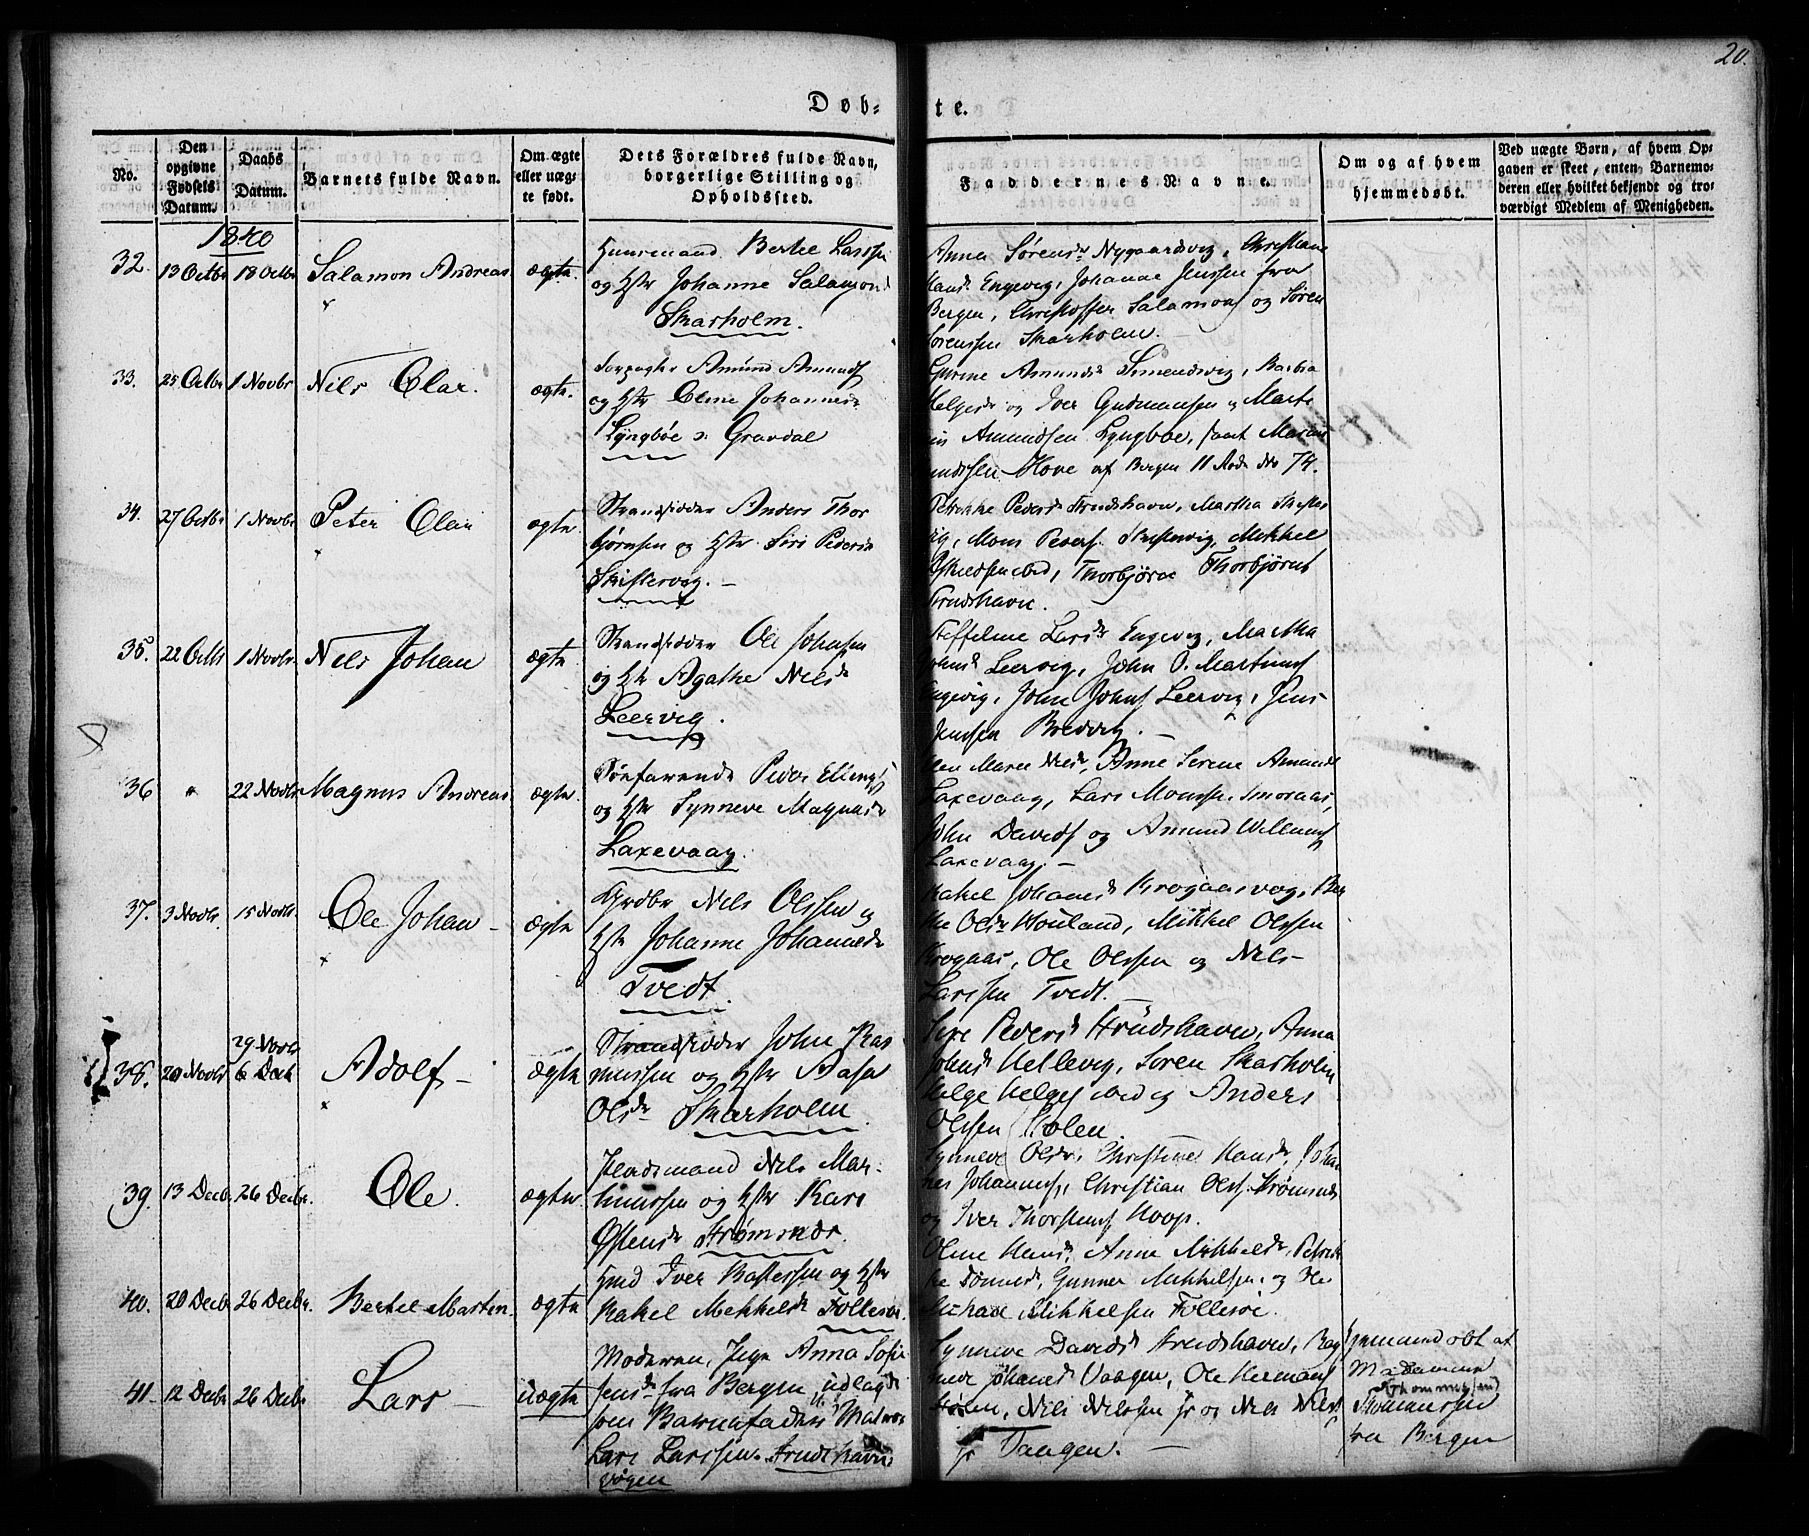 20.
Døb-te.
No.
Den opgivne Fødsels Datum.
Daabs Datum.
Barnets fulde Navn.
Om ægte eller uægte født.
Dets Forældres fulde Navn, borgerlige Stilling og Opholdssted.
Faddernes Navne.
Om og af hvem hjemmedøbt.
Ved uægte Børn, af hvem Opgaven er skeet, enten Barnemoderen eller hvilket bekjendt og troværdigt Medlem af Menigheden.
1840
32. 13 Octbr 18 Octbr Salamon Andreas ægte.
Huusmand Bertel Larssen
og Hstr Johanne Salamonsd
Skarholm.
Anna Sørensd Nygaardsvig, Christiane
Hansd Engevig, Johanne Jenssen fra
Bergen, Christoffer Salamons og Søren
Sørenssen Skarholm.
33. 25 Octbr 1 Novbr Nils Olai. ægte.
Amund Amunds
og Hstr Oline Johannesd
Lyngbøe v: Gravdal
Gurine Amundsd Simensvig, Barbra
Helgesd og Iver Gudmansen, Marte
Amundsen Lyngbøe, samt
Hove af Bergen 11 Rode No 74.
34. 27 Octbr 1 Novbr Peter Olai ægte.
Strandsidder Anders Thor
bjørnsen og Hstr Siri Pedersd
Skiftesvog. -
Petrikke Pedersd Strudshavn, Martha
Mons Peders. Mikkel
ibid, Thorbjørne Thorbjørns
Strudshavn.
35. 22 Octbr 1 Novbr. Nils Johan ægte
Strandsidder Ole Johnsen
og Hstr Agathe Nilsd
Leervig.
Steffeline Larsd Engevig, Martha
Johnsd Leervig, John O. Martinus
Engevig, John Johns Leervig, Jens
Jenssen Bredvig. -
36 " 22 Novbr Magnus Andreas ægte.
Søefarende Peder Ellings
og Hstr Synneve Magnusd
Laxevaag.
Maren Nilsd, Anne Serine Amunds
Laxevaag, Lars Monssen Smøraas,
John Davids og Amund Willums
Laxevaag. -
37. 3 Novbr. 15 Novbr. Ole Johan - ægte
Grdbr Nels Olssen og
Hstr Johanne Johannesd
Tvedt.
Rakel Johansd Krogaasvog, Ber
the Olsd Houland, Mikkel Olssen
Krogaas, Ole Olssen og Nels
Larssen Tvedt.
38. 20 Novbr 29 Novbr 6 Decbr Adolf - ægte
Strandsidder John Ras
mussen og Hstr Aasa
Olsd Skarholm.
Siri Pedersd Strudshavn, Anna
Johnsd Hellevig, Søren Skarholm
Helge Helges ibid og Anders
Olssen Holen.
39. 13 Decbr 26 Decbr. Ole. ægte.
Pladsmand Nils Mar-
og Hstr Kari
Østensd Strømsnæs.
Synneve Olsd, Christine Hansd, Johan
nes Johannes, Christian Ols. Strømsnæs
og Iver Thorstens Hoop.
40. 20 Decbr 26 Decbr. Bertel Martin ægte
Hmd Iver Bastessen og Hstr
Rakel Mikkelsd Follesøe.
Oline Hansd, Anne Mikkelsd, Petrik
ke Tønnesd, Gunner Mikkelsen, og Ole
Mikkelsen Follesøe.
41. 12 Decbr 26 Decbr Lars - uægte
Moderen, Pige Anna Sofie
Jensd fra Bergen, udlagde
som Barnefader: Matros
Lars Larssen. Strudshavn
vogen
Synneve Davidsd Strudshavn, Rag
Johansd Vaagen, Ole Hermans
Nils Nilssen jr og Nels Nels
jr Vaagen. -
Hjemmedøbt af
Madamme
Thommessen
fra Bergen